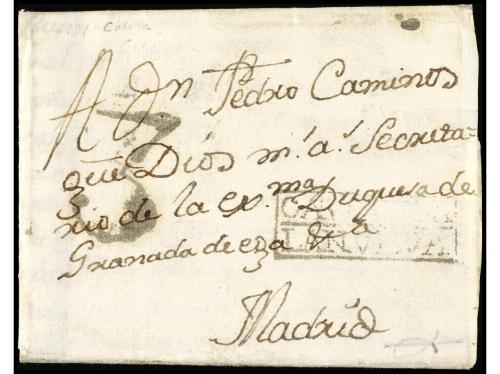 Cuenca
A Dn Pedro Caminos
que Dios m.s a.s Secreta=
rio de la ex.ma Duquesa de
Granada de ega &a
Madrid
3
CASTILLA
LANUEVA